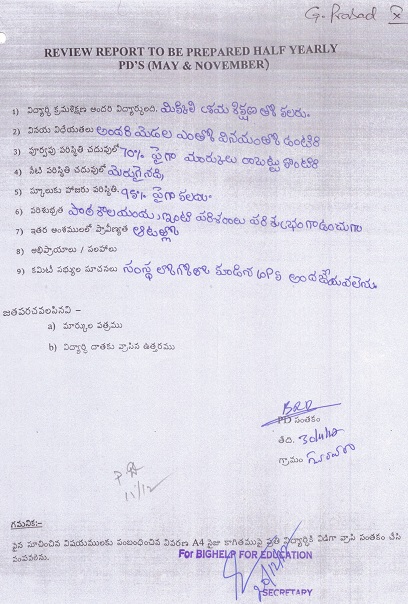 G. Prasad X
REVIEW REPORT TO BE PREPARED HALF YEARLY
PD'S (MAY & NOVEMBER)
1) విద్యార్థి క్రమశిక్షణ అందరి విద్యార్థులది. మిక్కిలి క్రమ శిక్షణ కలరు.
2) వినయ విధేయతలు అందరి మెడల ఎంతో వినయంతో ఉంటారు
3) పూర్వపు పరిస్థితి చదువులో 70% పైగా మార్కులు రాబట్టు కొంటారి
4) నేటి పరిస్థితి చదువులో మెరుగైనది,
5) స్కూలుకు హాజరు పరిస్థితి. 95% పైగా కలదు.
6) పరిశుభ్రత పాఠశాలయందు, ఇంటి పరిశుభ్రంగా
7) ఇతర అంశములలో ప్రావీణ్యత ఆటల్లో
8) అభిప్రాయాలు / సలహాలు
9) కమిటీ సభ్యుల సూచనలు సంస్థ కూడిన అందజేయవలెను.
జతపరచవలసినవి -
a) మార్కుల పత్రము
b) విద్యార్థి దాతకు వ్రాసిన ఉత్తరము
PD సంతకం
తేది.
గ్రామం
11/12
గమనిక:-
పైన సూచించిన విషయములకు సంబంధించిన వివరణ A4 సైజు కాగితముపై ప్రతి విద్యార్థికి విడిగా వ్రాసి సంతకం చేసి
పంపవలెను.
For BIGHELP FOR EDUCATION
SECRETARY